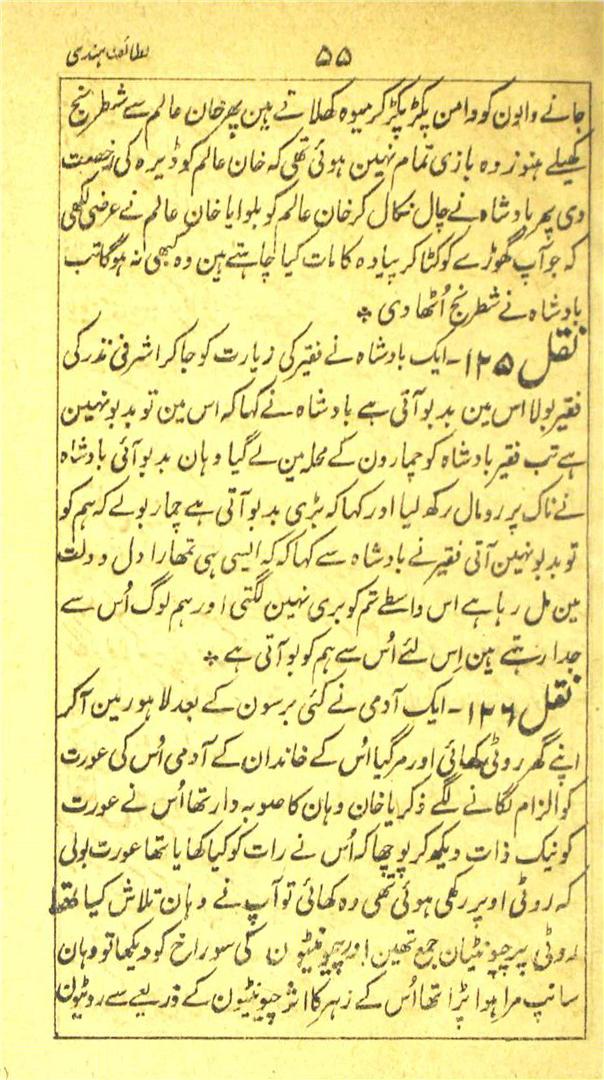 لطائف ہندی
۵۵
جانے والون کو دامن پکڑ پکڑ کر میوہ کھلاتے ہین پھر خان عالم سے شطرنج
کھیلے ہنوز وہ بازی تمام نہین ہوئی تھی کہ خان عالم کو ڈیرہ کی رخصت
دی پھر بادشاہ نے چال نکال کر خان عالم کو بلوایا خان عالم نے عرضی لکھی
کہ جو آپ گھوڑے کو کٹا کر پیادہ کا مات کیا چاہتے ہین وہ کبھی نہ ہو گا تب
بادشاہ نے شطرنج اُٹھا دی *
نقل ۱۲۵۔ ایک بادشاہ نے فقیر کی زیارت کو جا کر اشرفی نذر کی
فقیر بولا اس مین بدبو آتی ہے بادشاہ نے کہا کہ اس مین تو بدبو نہین
ہے تب فقیر بادشاہ کو چمارون کے محلہ مین لے گیا وہان بدبو آئی بادشاہ
نے ناک پر رومال رکھ لیا اور کہا کہ بڑی بدبو آتی ہے چمار بولے کہ ہم کو
تو بدبو نہین آتی فقیر نے بادشاہ سے کہا کہ کہ ایسی ہی تمھارا دل دولت
مین مل رہا ہے اس واسطے تم کو بری نہین لگتی اور ہم لوگ اُس سے
جدا رہتے ہین اِس لئے اُس سے ہم کو بو آتی ہے *
نقل ۱۲۶۔ ایک آدمی نے کئی برسون کے بعد لاہور مین آ کر
اپنے گھر روٹی کھائی اور مر گیا اُس کے خاندان کے آدمی اُس کی عورت
کو الزام لگانے لگے ذکریا خان وہان کا صوبہ دار تھا اُس نے عورت
کو نیک ذات دیکھ کر پوچھا کہ اُس نے رات کو کیا کھایا تھا عورت بولی
کہ روٹی اوپر رکھی ہوئی تھی وہ کھائی تو آپ نے وہان تلاش کیا تھا
روٹی پر چیونٹیان جمع تھین اور چیونٹیون کی سوراخ کو دیکھا تو وہان
سانپ مرا ہوا پڑا تھا اُس کے زہر کا اثر چیونٹیون کے ذریعے سے روٹیون